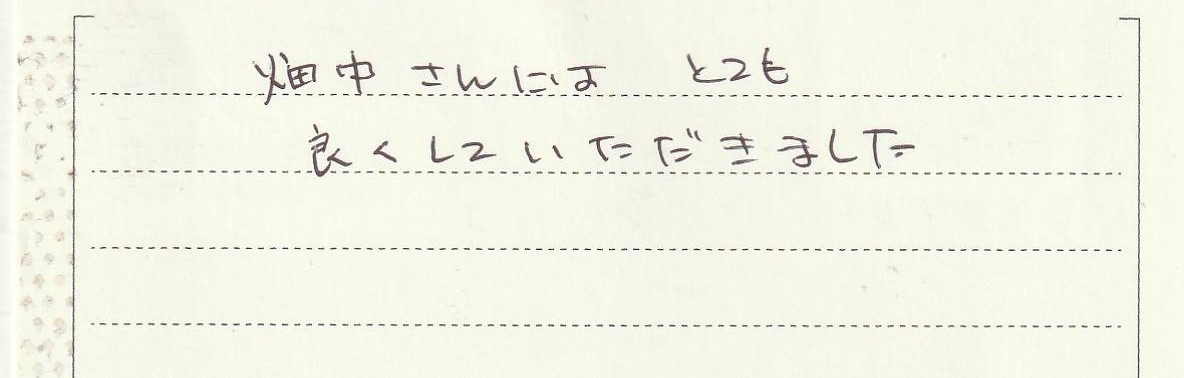 畑中さんには とても
良くしていただきました